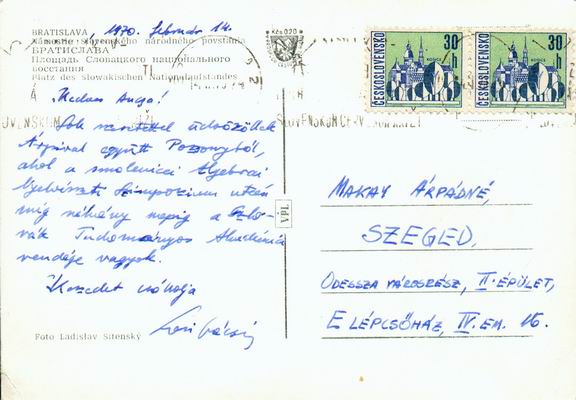 BRATISLAVA
1970. február 14.
Námestie Slovenského národného povstania
БРАТИСЛАВА
Площадь Словацкого национального
восстания
Platz des slowakischen Nationalaufstandes
Kčs 0,20
Kedves
Sok szeretettel üdvözöllek
Árpival együtt Pozsonyból,
ahol a smolenicei Algebrai
Szimpozium után
még néhány napig a Szlo-
vák Tudományos Akadémia
vendége vagyok.
Kezedet csókolja
bácsi
Foto Ladislav Sitenský
VPL
ČESKOSLOVENSKO
30 h
KOŠICE
ČESKOSLOVENSKO
30 h
KOŠICE
MAKAY ÁRPÁDNÉ,
SZEGED,
ODESSZA VÁROSRÉSZ, II. ÉPÜLET,
E LÉPCSŐHÁZ, IV. EM. 16.